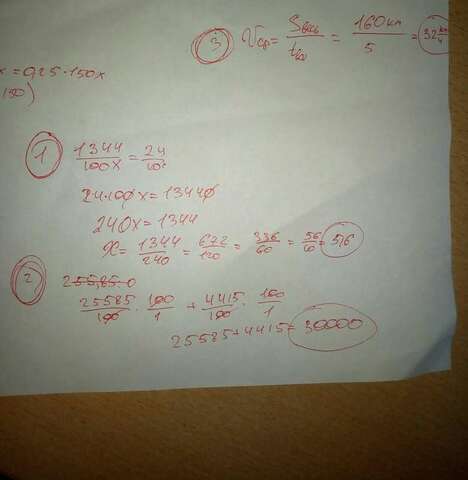 ③ Vср = Sвесь/tвс = 160км/5 = 32 км/ч
x = 0,25·150x
150)
① 1344/100x = 24/10
24·100x = 13440
240x = 1344
x = 1344/240 = 672/120 = 336/60 = 56/10 = 5,6
② 255,85.0
25585/100 · 100/1 + 4415/100 · 100/1
25585+4415= 30000